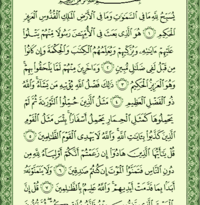 يُسَبِّحُ لِلَّهِ مَا فِي ٱلسَّمَٰوَٰتِ وَمَا فِي ٱلْأَرْضِ ٱلْمَلِكِ ٱلْقُدُّوسِ ٱلْعَزِيزِ
ٱلْحَكِيمِ ۝١ هُوَ ٱلَّذِي بَعَثَ فِي ٱلْأُمِّيِّـۧنَ رَسُولًا مِّنْهُمْ يَتْلُوا۟
عَلَيْهِمْ ءَايَٰتِهِۦ وَيُزَكِّيهِمْ وَيُعَلِّمُهُمُ ٱلْكِتَٰبَ وَٱلْحِكْمَةَ وَإِن كَانُوا۟
مِن قَبْلُ لَفِي ضَلَٰلٍ مُّبِينٍ ۝٢ وَءَاخَرِينَ مِنْهُمْ لَمَّا يَلْحَقُوا۟ بِهِمْ
وَهُوَ ٱلْعَزِيزُ ٱلْحَكِيمُ ۝٣ ذَٰلِكَ فَضْلُ ٱللَّهِ يُؤْتِيهِ مَن يَشَآءُ وَٱللَّهُ
ذُو ٱلْفَضْلِ ٱلْعَظِيمِ ۝٤ مَثَلُ ٱلَّذِينَ حُمِّلُوا۟ ٱلتَّوْرَىٰةَ ثُمَّ لَمْ
يَحْمِلُوهَا كَمَثَلِ ٱلْحِمَارِ يَحْمِلُ أَسْفَارًۢا بِئْسَ مَثَلُ ٱلْقَوْمِ
ٱلَّذِينَ كَذَّبُوا۟ بِـَٔايَٰتِ ٱللَّهِ وَٱللَّهُ لَا يَهْدِي ٱلْقَوْمَ ٱلظَّٰلِمِينَ ۝٥
قُلْ يَٰٓأَيُّهَا ٱلَّذِينَ هَادُوٓا۟ إِن زَعَمْتُمْ أَنَّكُمْ أَوْلِيَآءُ لِلَّهِ مِن
دُونِ ٱلنَّاسِ فَتَمَنَّوُا۟ ٱلْمَوْتَ إِن كُنتُمْ صَٰدِقِينَ ۝٦ وَلَا يَتَمَنَّوْنَهُۥٓ
أَبَدًۢا بِمَا قَدَّمَتْ أَيْدِيهِمْ وَٱللَّهُ عَلِيمٌۢ بِٱلظَّٰلِمِينَ ۝٧